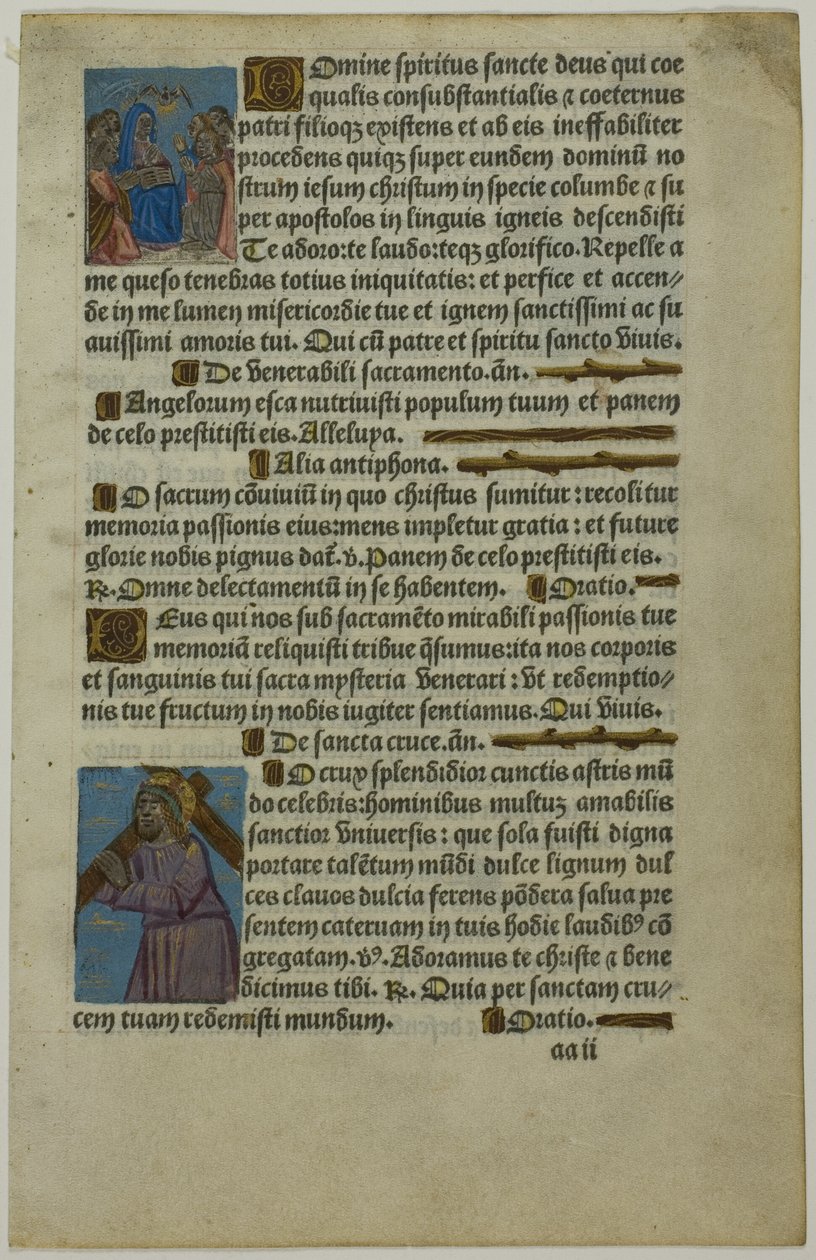 DOmine spiritus sancte deus qui coe
qualis consubstantialis ⁊ coeternus
patri filioqꝫ existens et ab eis ineffabiliter
procedens quiqꝫ super eundem dominū no
strum iesum christum in specie columbe ⁊ su
per apostolos in linguis igneis descendisti
Te adoro:te laudo:teqꝫ glorifico. Repelle a
me queso tenebras totius iniquitatis: et perfice et accen⸗
de in me lumen misericordie tue et ignem sanctissimi ac su
auissimi amoris tui. Qui cū patre et spiritu sancto viuis.
¶ De venerabili sacramento.an̄.
¶ Angelorum esca nutriuisti populum tuum et panem
de celo prestitisti eis. Alleluya.
¶ Alia antiphona.
¶ O sacrum cōuiuiū in quo christus sumitur: recolitur
memoria passionis eius:mens impletur gratia: et future
glorie nobis pignus dat̄. v. Panem de celo prestitisti eis.
℞. Omne delectamentū in se habentem. ¶ Oratio.
DEus qui nos sub sacramēto mirabili passionis tue
memoriā reliquisti tribue q̄sumus:ita nos corporis
et sanguinis tui sacra mysteria venerari: vt redemptio⸗
nis tue fructum in nobis iugiter sentiamus. Qui viuis.
¶ De sancta cruce.an̄.
¶ O crux splendidior cunctis astris mū
do celebris:hominibus multuꝫ amabilis
sanctior vniuersis: que sola fuisti digna
portare talētum mūdi dulce lignum dul
ces clauos dulcia ferens pōdera salua pre
sentem cateruam in tuis hodie laudibꝰ cō
gregatam. vꝰ. Adoramus te christe ⁊ bene
dicimus tibi. ℞. Quia per sanctam cru⸗
cem tuam redemisti mundum. ¶ Oratio.
aa ii